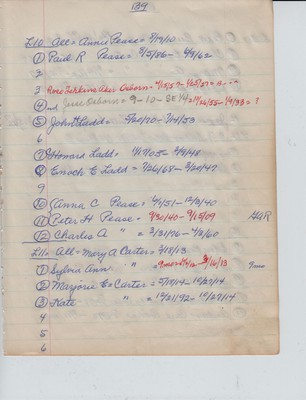 139
L10 All = Annie Pease = 7/19/10
① Paul R Pease = 7/5/86 - 4/3/62
2
3 Rose Jenkins Osborn =
④ Jesse Osborn = 9-10-
⑤ John Ladd = 5/20/70 - 7/04/53
6
⑦ Howard Ladd = 1/17/05 - 2/9/48
⑧ Enoch E Ladd = 7/26/68 - 3/20/47
9
⑩ Anna C Pease = 4/1/51 - 12/3/40
⑪ Peter H Pease = 9/30/40 - 5/15/09 GAR
⑫ Charles A " = 3/31/76 - 4/2/60
L11 = All = Mary A Carter = 2/18/13
① Sylvia Ann " = 3/16/13 9mo
② Marjorie E = Carter = 5/17/14 - 10/27/14
③ Kate " = 12/21/92 - 10/27/14
4
5
6